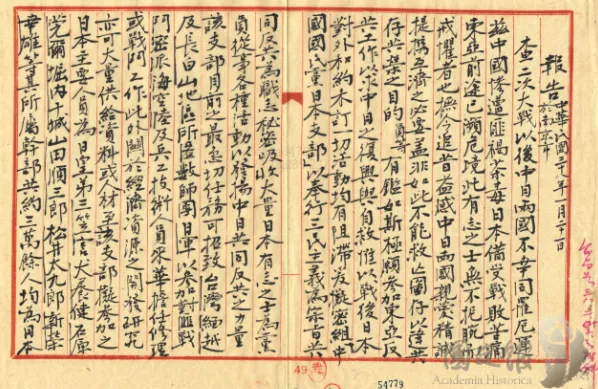 報告 中華民國
查二次大戰以後中日兩國不幸同罹厄運
茲中國慘遭匪禍荼毒日本備受戰敗苦痛
東亞前途已瀕危境此有志之士無不扼腕
戒懼者也撫今追昔益感中日兩國親愛精誠
提攜互濟之必要蓋非如此不能救亡圖存以達共
存共榮之目的員等有鑑如斯極願參加東亞反
共工作以求中日之復興與自救惟以戰後日本
對外和約未訂一切活動均有阻滯爰擬密組中
國國民黨日本支部以奉行三民主義為宗旨共
同反共為職志秘密吸收大量日本有志之士為黨
員從事各種活動以發揚中日共同反共之力量
該支部目前之最急切任務可招致台灣緬越
及長白山地區所數師團日軍以參加對匪戰
鬥密派海空陸及兵工技術人員來華擔任修理
或戰鬥工作此外關於經濟資源之開發研究
亦可大量供給資料或人材至該支部擬參加之
日本主要人員為日皇弟三笠宮犬養健石原
莞爾堀內干城山田順三郎松井太九郎新
雄等其所屬幹部共約三萬餘人均為日本
49
54779
國史館
Academia Historica